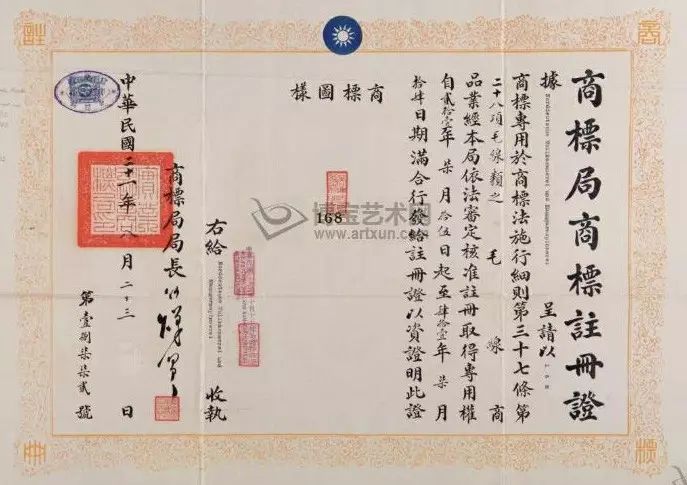 商標局商標註冊證
據 Norddeutsche Wollkämmerei und Kammgarnspinnerei 呈請以 168
商標專用於商標法施行細則第三十七條第
二十八項毛線類之毛線商
品業經本局依法審定核准註冊取得專用權
自貳拾壹年柒月拾伍日起至肆拾壹年柒月
拾肆日期滿合行發給註冊證以資證明此證
商標圖樣
168
右給 Norddeutsche Wollkämmerei und Kammgarnspinnerei 收執
商標局局長
中華民國二十一年八月二十三日
第壹捌柒柒貳號
博宝艺术网
www.artxun.com